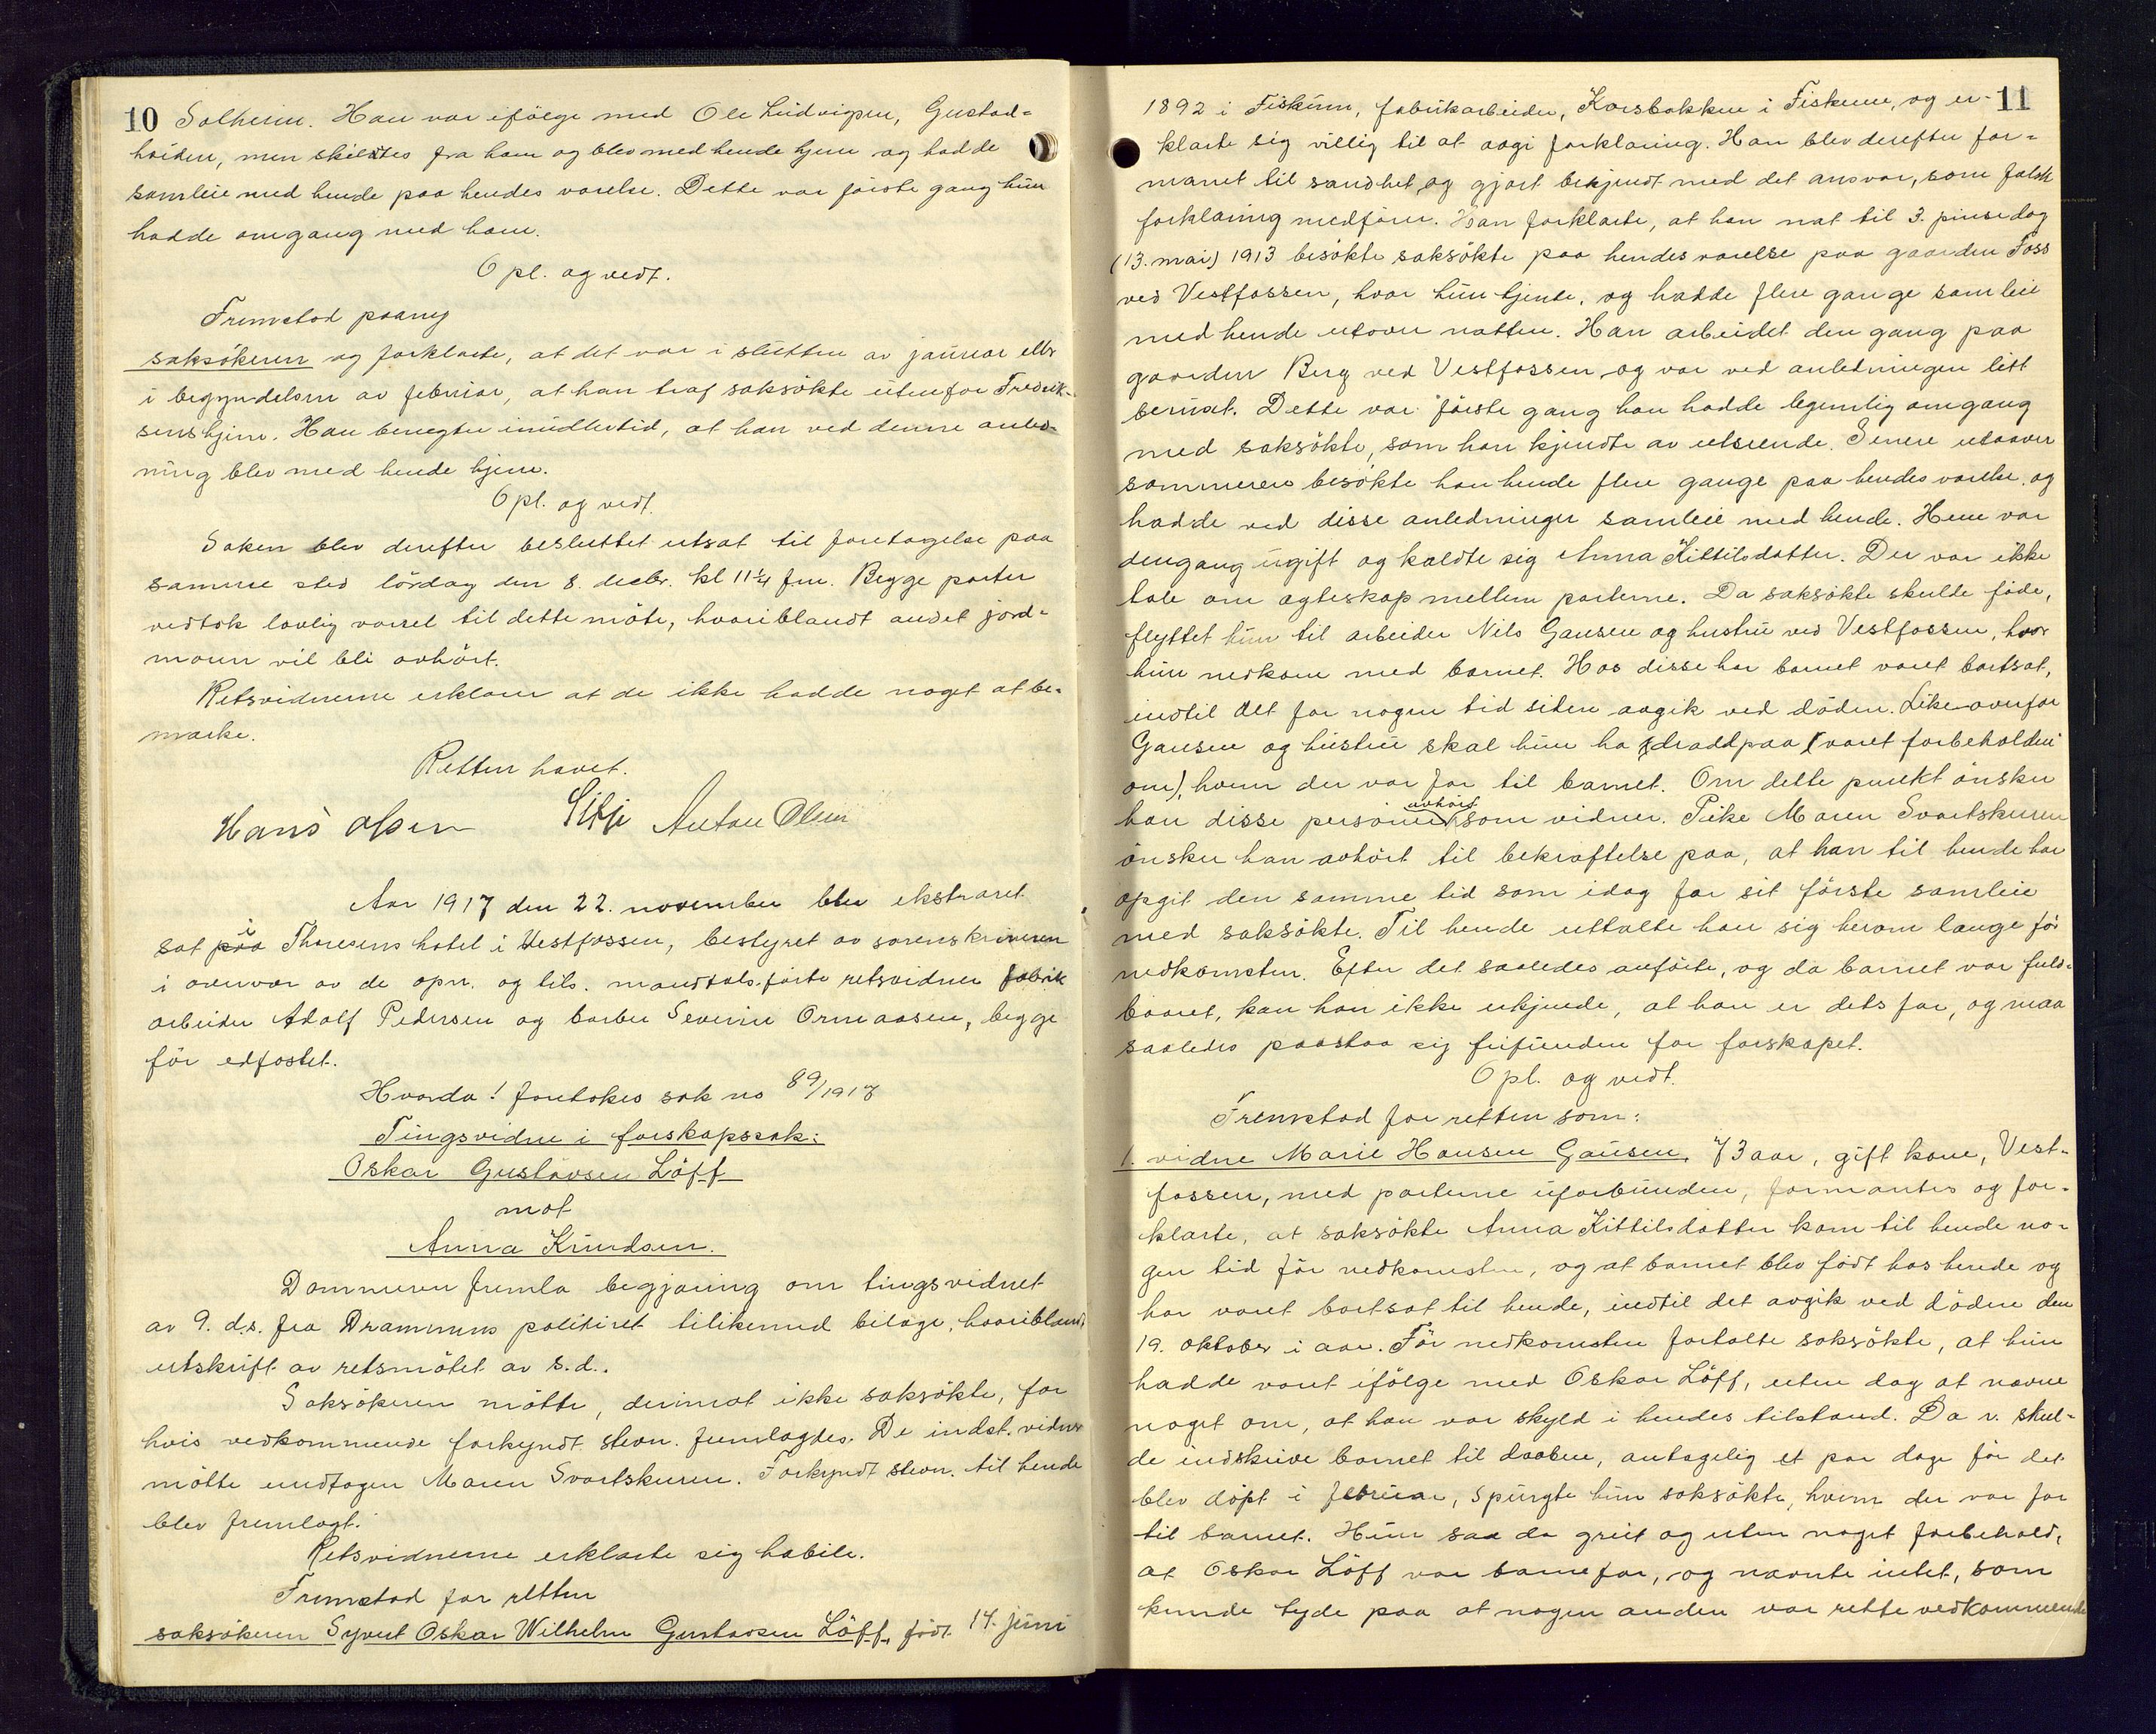 10 Solheim. Han var ifölge med Ole Ludvigsen, Gustad-
höiden, men skiltes fra ham og blev med hende hjem og hadde
samleie med hende paa hendes værelse. Dette var förste gang hun
hadde omgang med ham.
Opl. og vedt.
Fremstod paany
saksökeren og forklarte, at det var i slutten av januar eller
i begyndelsen av februar, at han traf saksökte utenfor Fredrik-
senshjem. Han benegter imidlertid, at han ved denne anled-
ning blev med hende hjem.
Opl. og vedt.
Saken blev derefter besluttet utsat til foretagelse paa
samme sted lördag den 8. decbr. kl 11¼ fm. Begge parter
vedtok lovlig varsel til dette möte, hvoriblandt andet jord-
moren vil bli avhört.
Retsvidnerne erklærer at de ikke hadde noget at be-
merke.
Retten hævet.
Hans Olsen Anton Olsen
Aar 1917 den 22. november blev ekstraret
sat paa i Thoresens hotel i Vestfossen, bestyret av sorenskriveren
i overvær av de opn. og tils. mandtalsförte retsvidner fabrik
arbeider Adolf Pedersen og barber Severin Ormaasen, begge
för edfæstet.
Hvorda! foretokes sak no 89/1917
Tingsvidne i farskapssak:
Oskar Gustavsen Löff
mot
Anna Knudsen.
Dommeren fremla begjæring om tingsvidnet
av 9. d.s. fra Drammens politiret tillikemed bilage, hvoriblandt
utskrift av retsmötet av s.d..
Saksökeren mötte, derimot ikke saksökte, for
hvis vedkommende forkyndt stevn. fremlagdes. De indst. vidner
mötte undtagen Maren Svartskuren. Forkyndt stevn. til hende
blev fremlagt.
Retsvidnerne erklærte sig habile.
Fremstod for retten
saksökeren Syvert Oskar Wilhelm Gustavsen Löff, födt 14. juni
1892 i Fiskum, fabrikarbeider, Korsbakken i Fiskum, og er- 11
klærte sig villig til at avgi forklaring. Han blev derefter for-
manet til sandhet og gjort bekjendt med det ansvar, som falsk
forklaring medförer. Han forklarte, at han nat til 3. pinsedag
(13. mai) 1913 besökte saksökte paa hendes værelse paa gaarden Foss
ved Vestfossen, hvor hun tjente, og hadde flere gange samleie
med hende utover natten. Han arbeidet den gang paa
gaarden Berg ved Vestfossen og var ved anledningen litt
beruset. Dette var förste gang han hadde legemlig omgang
med saksökte, som han kjendte av utseende. Senere utaaver
sommeren besökte han hende flere gange paa hendes værelse og
hadde ved disse anledninger samleie med hende. Hun var
dengang ugift og kaldte sig Anna Kittilsdatter. Der var ikke
tale om egteskap mellem parterne. Da saksökte skulde föde,
flyttet hun til arbeider Nils Gausen og hustru ved Vestfossen, hvor
hun nedkom med barnet. Hos disse har barnet været bortsat,
indtil det for nogen tid siden avgik ved döden. Like overfor
Gausen og hustru skal hun ha (draddpaa) (været forbeholden
om), hvem der var far til barnet. Om dette punkt önsker
han disse personer avhört som vidner. Pike Maren Svartskuren
önsker han avhört til bekræftelse paa, at han til hende har
opgit den samme tid som idag for sit förste samleie
med saksökte. Til hende uttalte han sig herom længe för
nedkomsten. Efter det saaledes anförte, og da barnet var fuld-
baaret, kan han ikke erkjende, at han er dets far, og maa
saaledes paastaa sig frifunden for farskapet.
Opl. og vedt.
Fremstod for retten som:
1. vidne Marie Hansen Gausen, 73 aar, gift kone, Vest-
fossen, med parterne uforbunden, formantes og for-
klarte, at saksökte Anna Kittilsdatter kom til hende no-
gen tid för nedkomsten, og at barnet blev födt hos hende og
har været bortsat til hende, indtil det avgik ved döden den
19. oktober i aar. För nedkomsten fortalte saksökte, at hun
hadde været ifölge med Oskar Löff, uten dog at nævne
noget om, at han var skyld i hendes tilstand. Da v. skul-
de indskrive barnet til daaben, antagelig et par dage för det
blev döpt i februar, spurgte hun saksökte, hvem der var far
til barnet. Hun saa da greit og uten noget forbehold,
at Oskar Löff var barnefar, og nævnte intet, som
kunde tyde paa at nogen anden var rette vedkommende